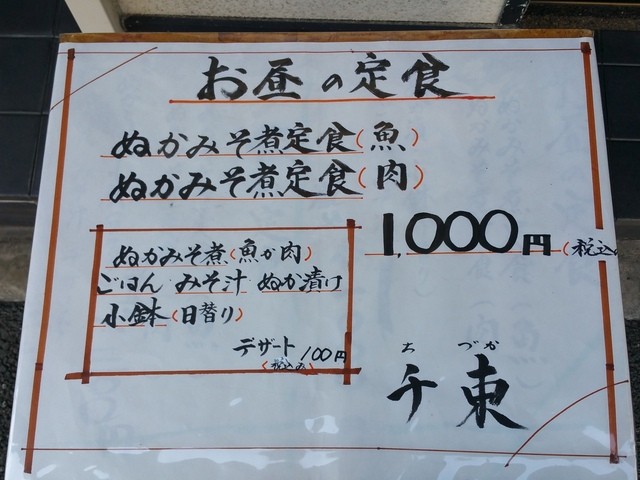 お昼の定食
ぬかみそ煮定食(魚)
ぬかみそ煮定食(肉)
1,000円(税込
ぬかみそ煮(魚か肉)
ごはん みそ汁 ぬか漬け
小鉢(日替り)
デザート 100円
(税込み)
ちづか
千束